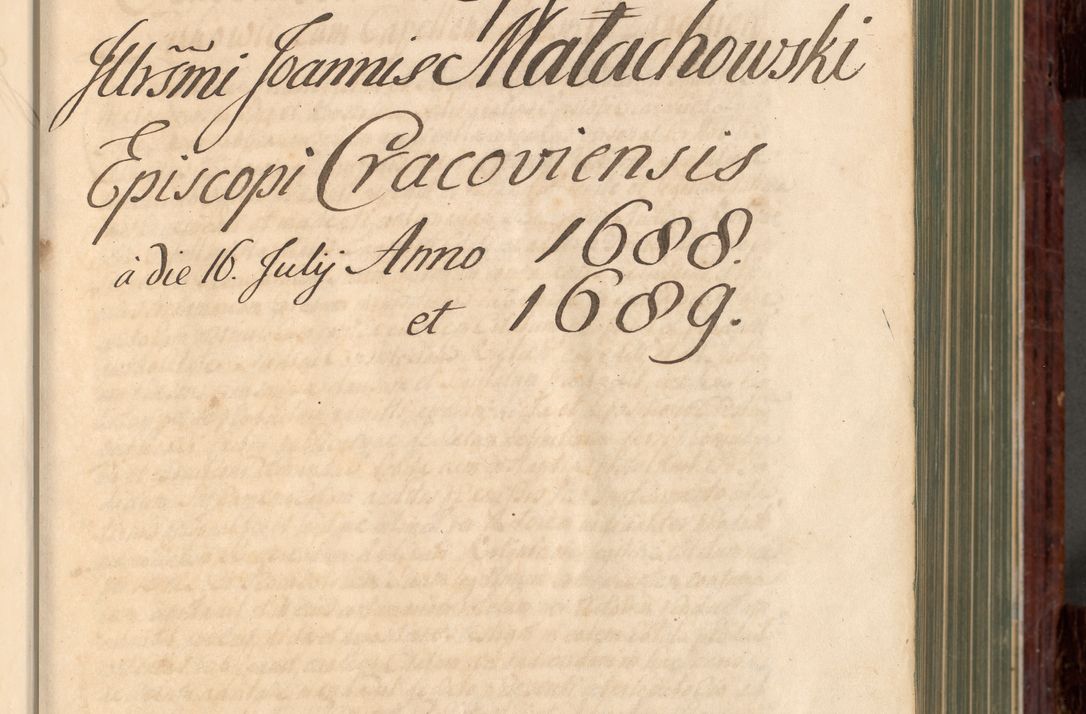 Illrs̃mi Joannis Małachowski
Episcopi Cracoviensis
à die 16. Julij Anno 1688.
et 1689.